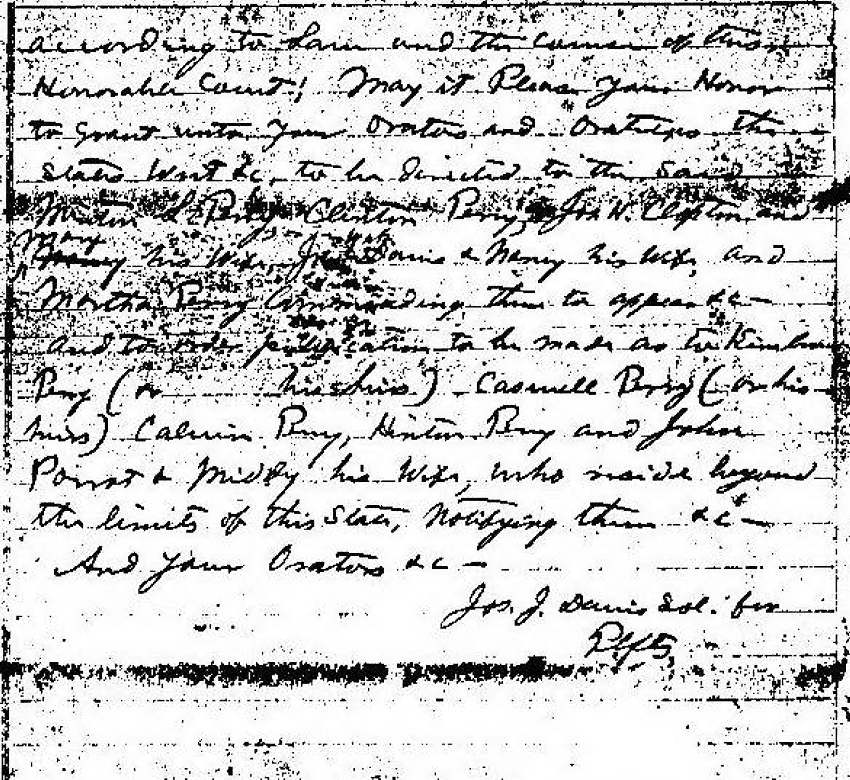 according to Law and the course of this
Honorable Court! May it Please Your Honor
to grant unto Your Orators and Oratrixes the
States Writ &c, to be directed to the said
Perry Clinton Perry, Jos. W. Clifton and
Mary
his Wife, Davis & Nancy his Wife, and
Martha Perry Commanding them to appear &c —
And to order publication to be made as to Kimbro
Perry (or his heirs) Caswell Perry (or his
heirs) Calvin Perry, Hinton Perry and John
& Middy his Wife, who reside beyond
the limits of this State, Notifying them &c —
And Your Orators &c —
Jos. J. Davis Sol. for
Plffs